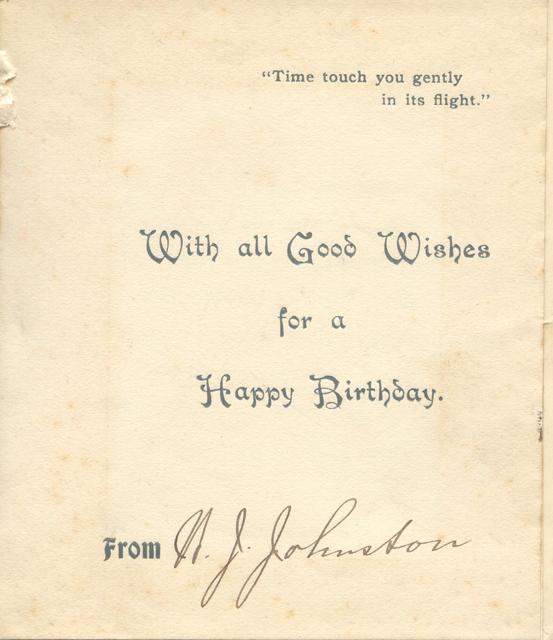 “Time touch you gently
in its flight.”
With all Good Wishes
for a
Happy Birthday.
From J. Johnston